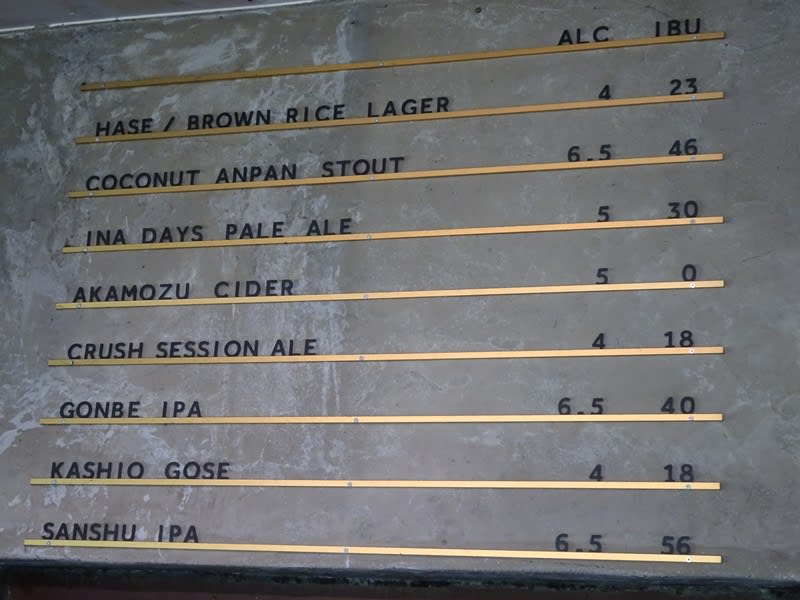 ALC IBU
HASE / BROWN RICE LAGER 4 23
COCONUT ANPAN STOUT 6.5 46
INA DAYS PALE ALE 5 30
AKAMOZU CIDER 5 0
CRUSH SESSION ALE 4 18
GONBE IPA 6.5 40
KASHIO GOSE 4 18
SANSHU IPA 6.5 56